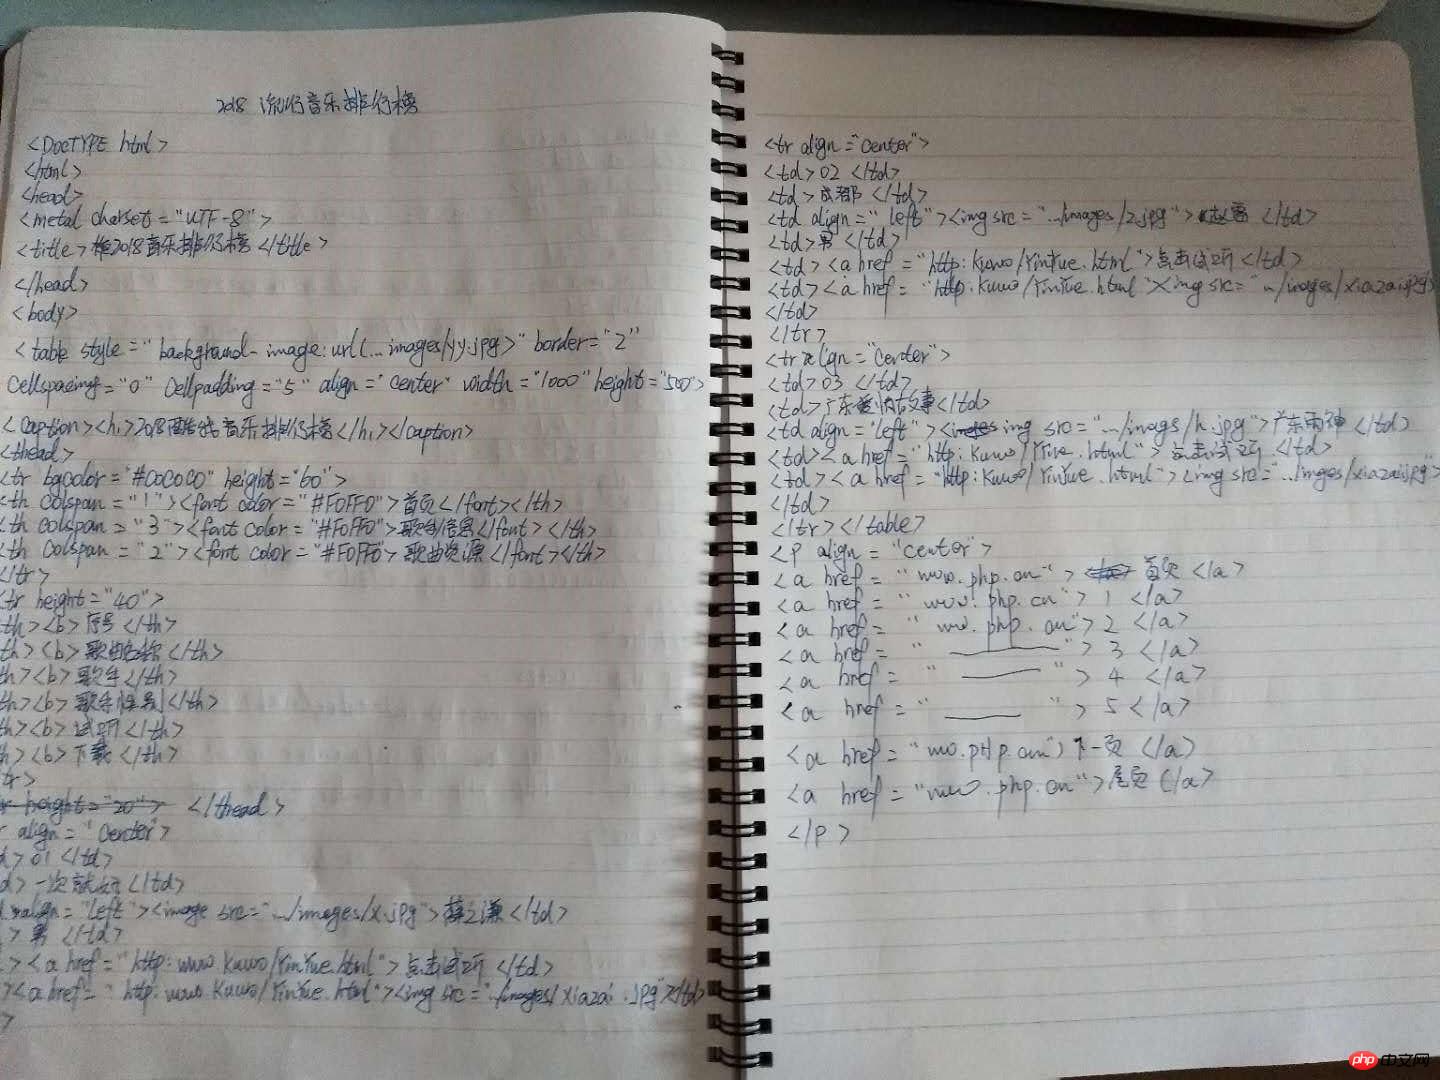 2018 流行音乐排行榜
<DOCTYPE html>
<html>
<head>
<metal charset="UTF-8">
<title>2018音乐排行榜</title>
</head>
<body>
<table style="background-image:url(...images/yy.jpg>" border="2"
Cellspacing="0" Cellpadding="5" align="center" width="1000" height="500">
<caption><h1>2018酷我音乐排行榜</h1></caption>
<thead>
<tr bgcolor="#C0C0C0" height="60">
<th colspan="1"><font color="#F0FF0">首页</font></th>
<th colspan="3"><font color="#F0FF0">歌手信息</font></th>
<th colspan="2"><font color="#F0FF0">歌曲资源</font></th>
</tr>
<tr height="40">
th><b>序号</th>
th><b>歌曲名称</th>
th><b>歌手</th>
th><b>歌手性别</th>
th><b>试听</th>
h><b>下载</th>
tr>
</thead>
r align="center">
d>01</td>
d>一次就好</td>
align="left"><image src="../images/x.jpg">薛之谦</td>
>男</td>
><a href="http:www.Kuwo/YinYue.html">点击试听</td>
><a href="http:www.Kuwo/YinYue.html"><img src="../images/xiazai.jpg"></td>
>
<tr align="center">
<td>02</td>
<td>成都</td>
<td align="left"><img src="../images/2.jpg">赵雷</td>
<td>男</td>
<td><a href="http:Kuwo/YinYue.html">点击试听</td>
<td><a href="http:Kuwo/YinYue.html"><img src="../images/xiazai.jpg">
</td>
</tr>
<tr align="center">
<td>03</td>
<td>广东爱情故事</td>
<td align="left"><img src="../imags/h.jpg">广东雨神</td>
<td><a href="http:Kuwo/YYue.html">点击试听</td>
<td><a href="http:Kuwo/YinYue.html"><img src="../imges/xiazai.jpg">
</td>
</tr></table>
<p align="center">
<a href="www.php.cn">首页</a>
<a href="www.php.cn">1</a>
<a href="www.php.cn">2</a>
<a href="____">3</a>
<a href="____">4</a>
<a href="____">5</a>
<a href="www.pHp.cn">下一页</a>
<a href="www.php.cn">尾页</a>
</p>
php 中文网